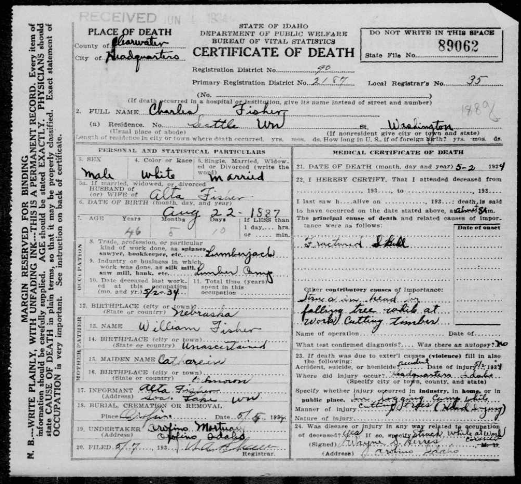 RECEIVED JUN
STATE OF IDAHO
DEPARTMENT OF PUBLIC WELFARE
BUREAU OF VITAL STATISTICS
CERTIFICATE OF DEATH
DO NOT WRITE IN THIS SPACE
State File No. 89062
PLACE OF DEATH
County of Clearwater
City of Headquarters
Registration District No. 90
Primary Registration District No. 2187
Local Registrar's No. 35
(No.
(If death occurred in a hospital or institution, give its name instead of street and number)
2. FULL NAME Charles Fisher
(a) Residence. No. Seattle Wn Washington
(Usual place of abode) (If nonresident give city or town and state)
Length of residence in city or town where death occurred. yrs. mos. ds. How long in U. S., if of foreign birth? yrs. mos. ds.
PERSONAL AND STATISTICAL PARTICULARS
3. SEX 4. Color or Race 5. Single, Married, Widowed, or Divorced (write the word)
Male White Married
5a. If married, widowed, or divorced
HUSBAND of
(or) WIFE of Alta Fisher
6. DATE OF BIRTH (month, day, and year)
Aug 22 - 1887
7. AGE Years Months Days If LESS than
1 day, hrs.
or min.
46
8. Trade, profession, or particular
kind of work done, as spinner,
sawyer, bookkeeper, etc. Lumberjack
9. Industry or business in which
work was done, as silk mill,
saw mill, bank, etc. Lumber Camp
10. Date deceased last worked
at this occupation
(month and year) 5/2-34
11. Total time (years)
spent in this
occupation
12. BIRTHPLACE (city or town)
(State or country) Nebraska
13. NAME William Fisher
14. BIRTHPLACE (city or town)
(State or country) Unascertained
15. MAIDEN NAME
16. BIRTHPLACE (city or town)
(State or country)
17. INFORMANT Alta Fisher
(Address)
18. BURIAL, CREMATION OR REMOVAL
Place Date 1934
19. UNDERTAKER Orofino Mortuary
(Address) Orofino Idaho
20. FILED 5/7, 193
Registrar.
MEDICAL CERTIFICATE OF DEATH
21. DATE OF DEATH (month, day and year) 5-2 1934
22. I HEREBY CERTIFY, That I attended deceased from
193 , to 193
I last saw h alive on , 193 , death is said
to have occurred on the date stated above, at
The principal cause of death and related causes of importance were as follows:
Date of onset
Fractured Skull
Other contributory causes of importance:
falling tree while at
work cutting timber
Name of operation Date of
What test confirmed diagnosis? Was there an autopsy? no
23. If death was due to external causes (violence) fill in also
the following:
Accident, suicide, or homicide? Date of injury 193
Where did injury occur? Headquarters Idaho
(Specify city or town, county, and state)
Specify whether injury occurred in industry, in home, or in
public place.
Manner of injury
Nature of injury
24. Was disease or injury in any way related to occupation
of deceased? Yes If so, specify struck while at work
(Signed)
(Address) Orofino Idaho
MARGIN RESERVED FOR BINDING
N. B.—WRITE PLAINLY, WITH UNFADING INK—THIS IS A PERMANENT RECORD. Every item of
information should be carefully supplied. AGE should be stated EXACTLY. PHYSICIANS should
state CAUSE OF DEATH in plain terms, so that it may be properly classified. Exact statement of
OCCUPATION is very important. See instruction on back of certificate.
OCCUPATION
FATHER
MOTHER